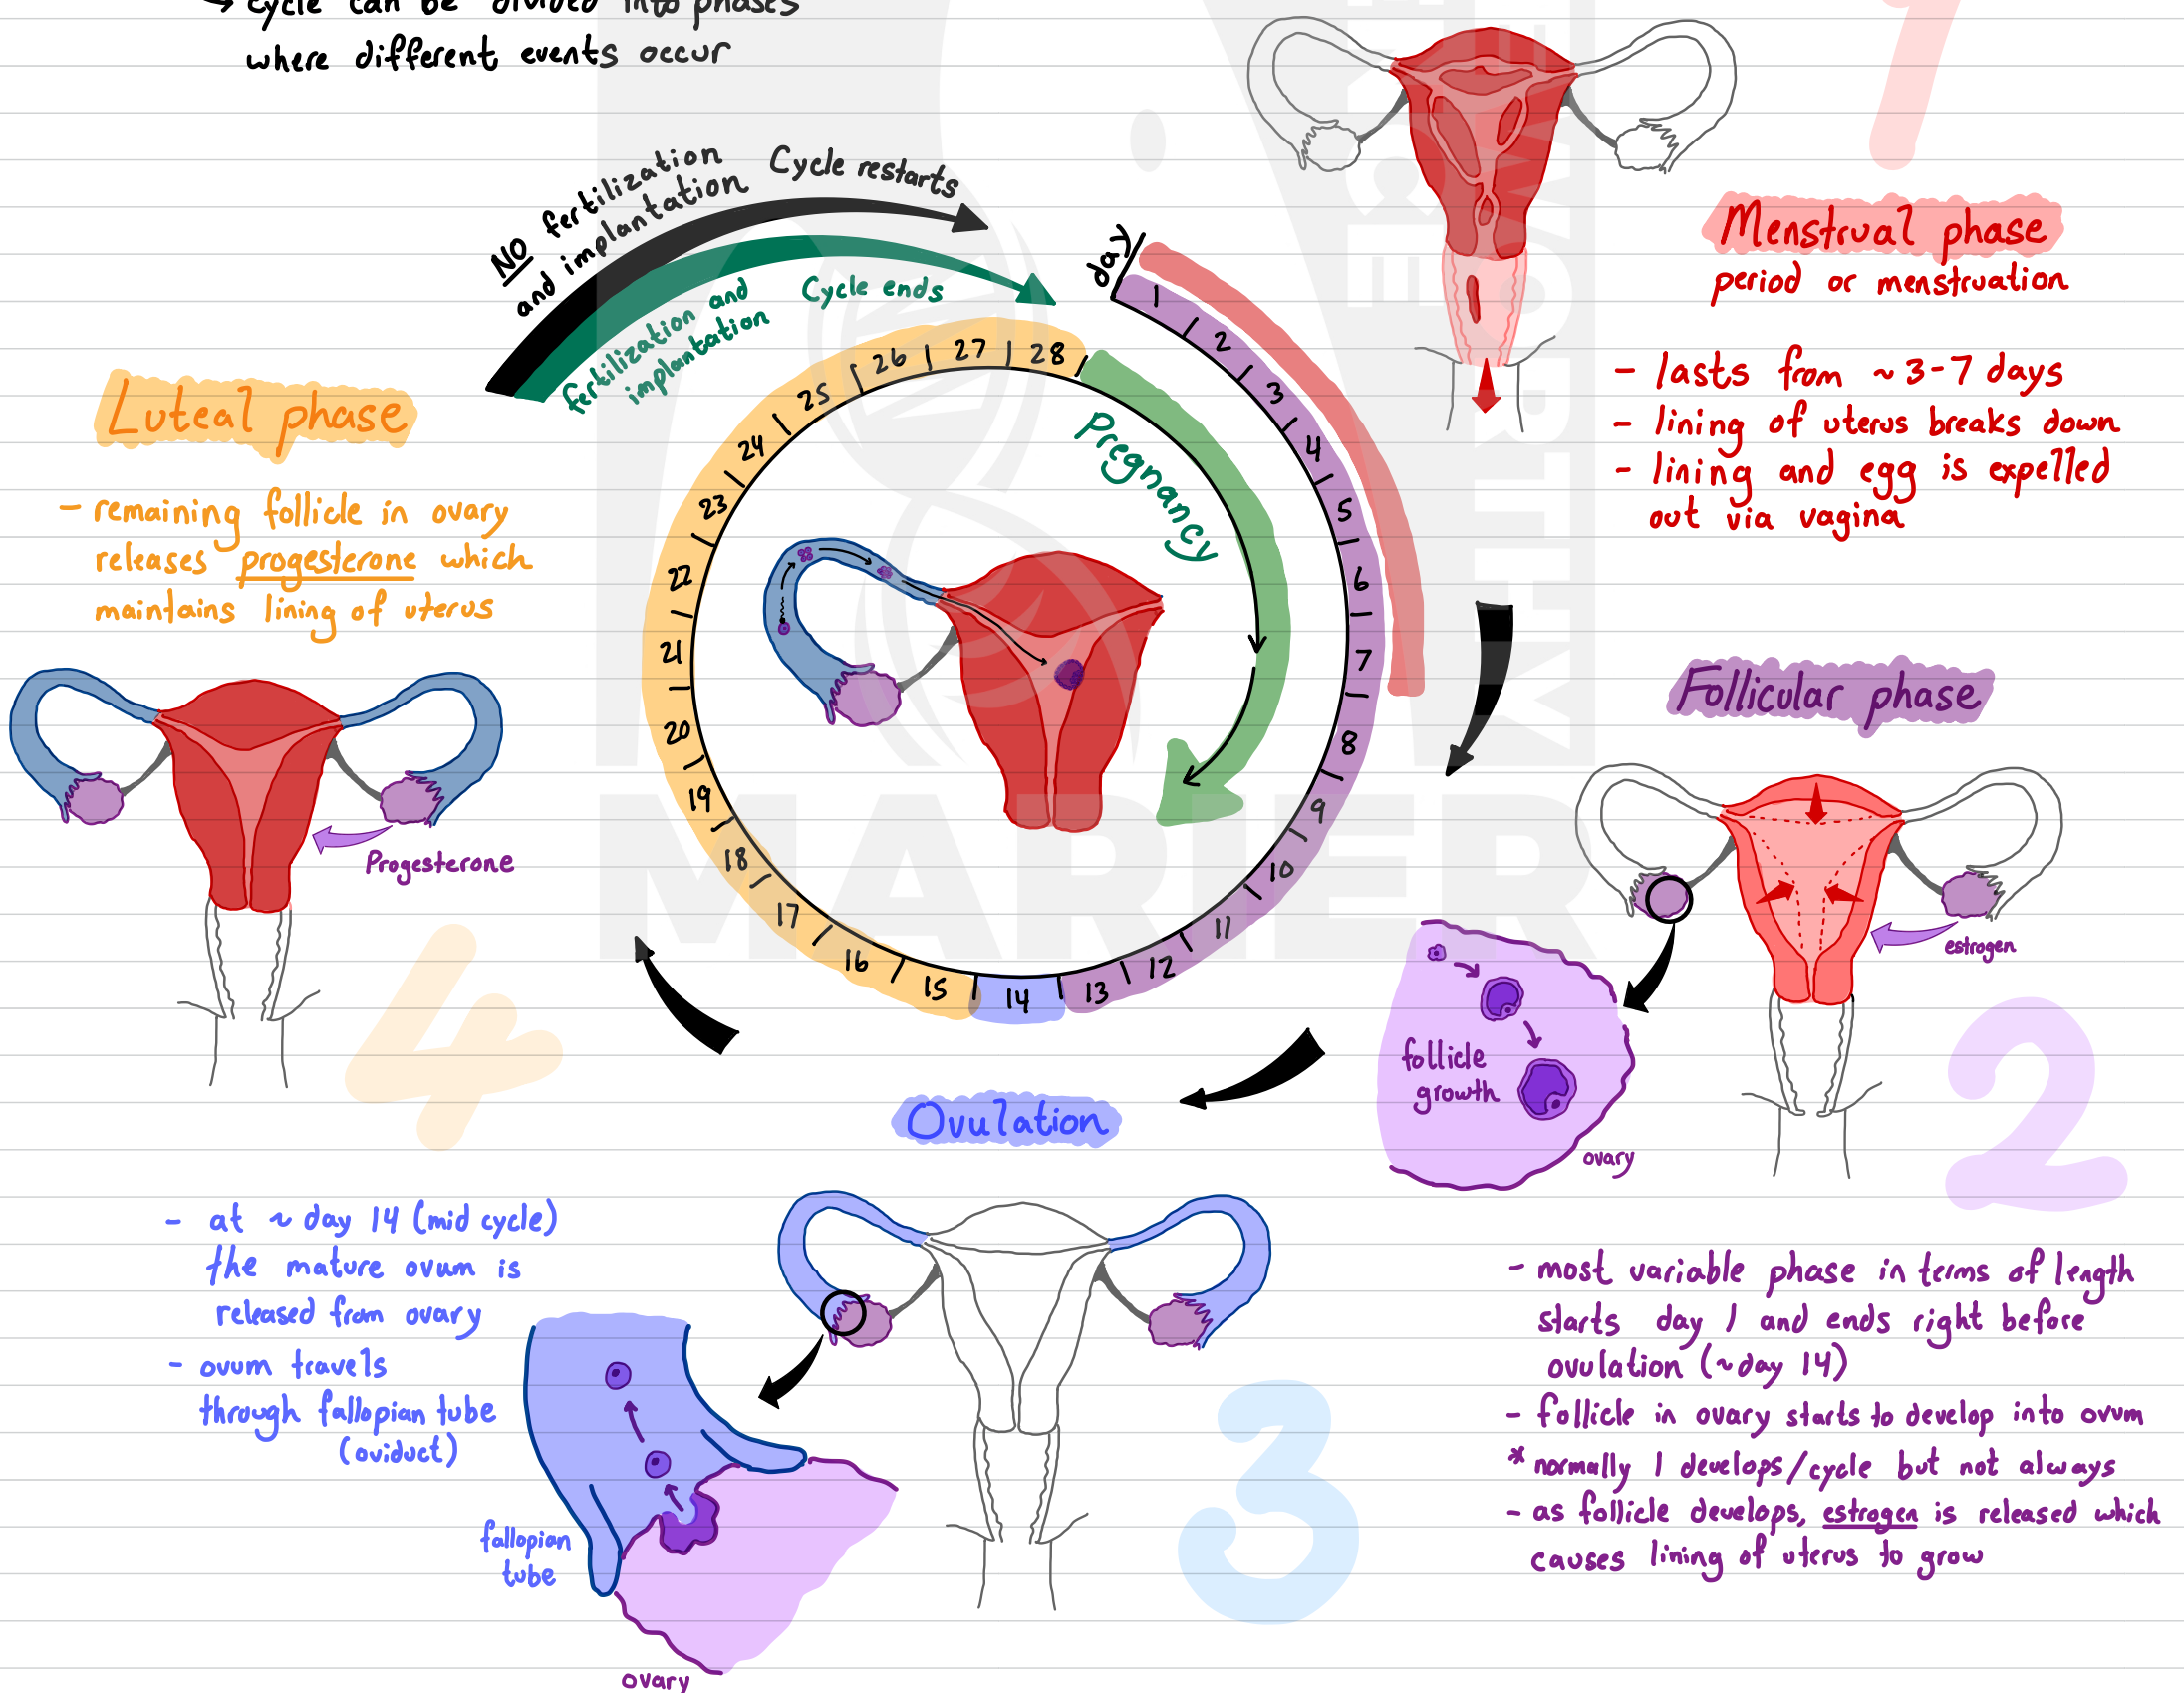 ↳ cycle can be divided into phases
where different events occur
NO fertilization
and implantation
Cycle restarts
fertilization and
implantation
Cycle ends
day
1
2
3
4
5
6
7
8
9
10
11
12
13
14
15
16
17
18
19
20
21
22
23
24
25
26
27
28
Pregnancy
1
Menstrual phase
period or menstruation
- lasts from ~3-7 days
- lining of uterus breaks down
- lining and egg is expelled
out via vagina
Follicular phase
estrogen
follicle
growth
ovary
2
- most variable phase in terms of length
starts day 1 and ends right before
ovulation (~day 14)
- follicle in ovary starts to develop into ovum
* normally 1 develops/cycle but not always
- as follicle develops, estrogen is released which
causes lining of uterus to grow
Ovulation
- at ~ day 14 (mid cycle)
the mature ovum is
released from ovary
- ovum travels
through fallopian tube
(oviduct)
fallopian
tube
ovary
3
Luteal phase
- remaining follicle in ovary
releases progesterone which
maintains lining of uterus
Progesterone
4
MARIER